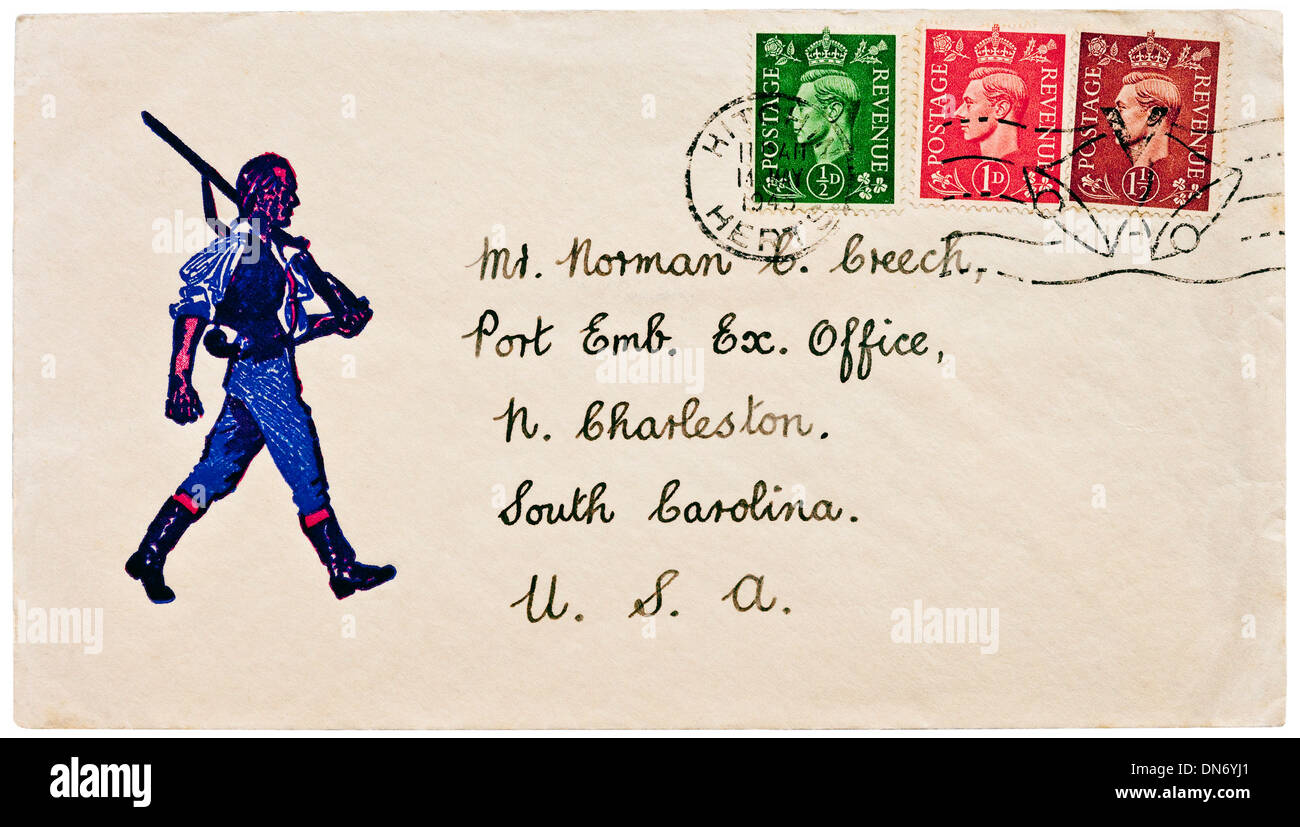 POSTAGE REVENUE ½D
POSTAGE REVENUE 1D
POSTAGE REVENUE 1½D
HERTS
Mr. Norman C. Creech,
Port Emb. Ex. Office,
N. Charleston.
South Carolina.
U. S. A.
alamy
a alamy stock photo
DN6YJ1
www.alamy.com